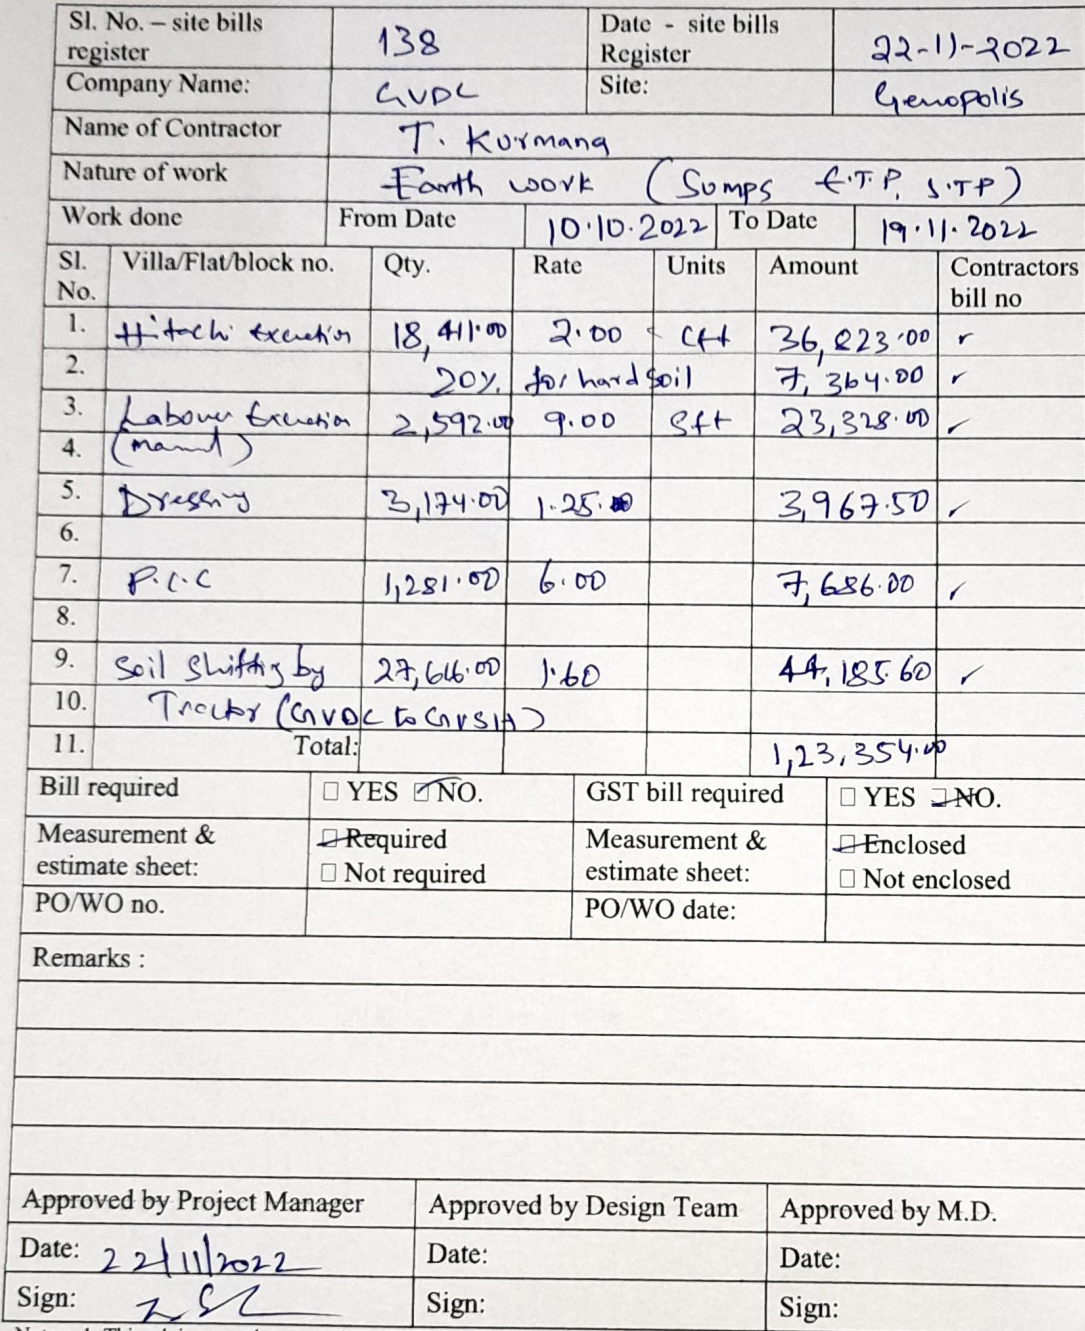 Sl. No. – site bills register 138 Date - site bills Register 22-11-2022
Company Name: GVDC Site: Genopolis
Name of Contractor T. Kurmana
Nature of work Earth work (Sumps E.T.P, S.TP)
Work done From Date 10.10.2022 To Date 19.11.2022
Sl. No. Villa/Flat/block no. Qty. Rate Units Amount Contractors bill no
1. Hitachi 18,411.00 2.00 cft 36,823.00 ✓
2. 20% for hard soil 7,364.00 ✓
3. Labour 2,592.00 9.00 Sft 23,328.00 ✓
4.
5. Dressing 3,174.00 1.25 3,967.50 ✓
6.
7. P.C.C 1,281.00 6.00 7,686.00 ✓
8.
9. Soil Shifting by 27,616.00 1.60 44,185.60 ✓
10. Tractor (GVDC to GVSH)
11. Total: 1,23,354.00
Bill required □ YES ☑ NO. GST bill required □ YES ☑ NO.
Measurement & estimate sheet: ☑ Required □ Not required Measurement & estimate sheet: ☑ Enclosed □ Not enclosed
PO/WO no. PO/WO date:
Remarks :
Approved by Project Manager Approved by Design Team Approved by M.D.
Date: 22/11/2022 Date: Date:
Sign: Sign: Sign: